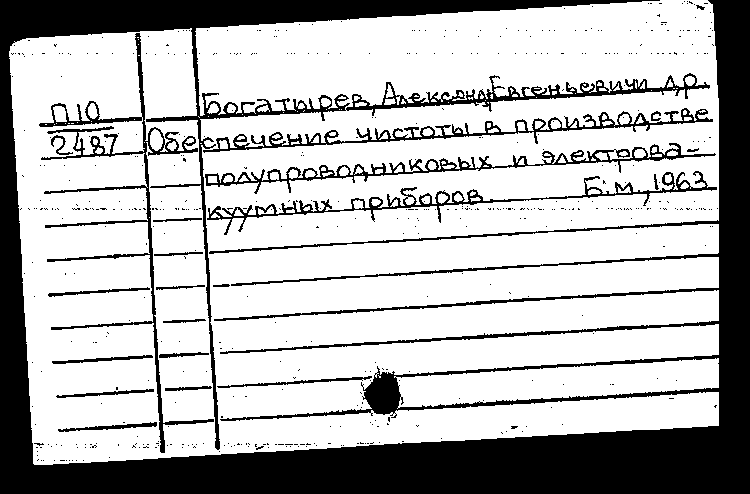 П10
2487
Богатырев, Александр Евгеньевич и др.
Обеспечение чистоты в производстве
полупроводниковых и электрова-
куумных приборов. Б.м., 1963